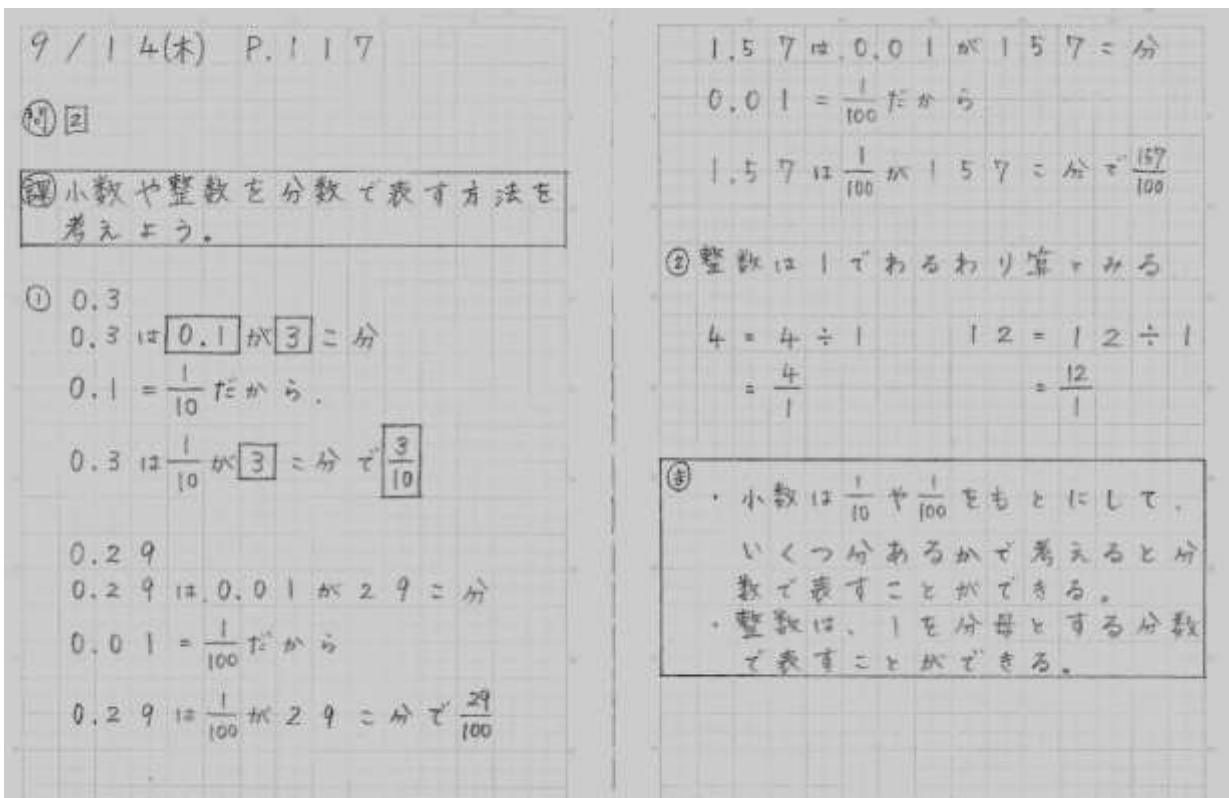 9/14(木) P.117
問 2
課 小数や整数を分数で表す方法を
考えよう。
① 0.3
0.3は0.1が3こ分
0.1 = 1/10 だから、
0.3は 1/10 が3こ分で 3/10
0.29
0.29は、0.01が29こ分
0.01 = 1/100 だから
0.29は 1/100 が29こ分で 29/100
1.57は、0.01が157こ分
0.01 = 1/100 だから
1.57は 1/100 が157こ分で 157/100
② 整数は1でわるわり算とみる
4 = 4 ÷ 1
= 4/1
12 = 12 ÷ 1
= 12/1
ま
・小数は 1/10 や 1/100 をもとにして、
いくつ分あるかで考えると分
数で表すことができる。
・整数は、1を分母とする分数
で表すことができる。